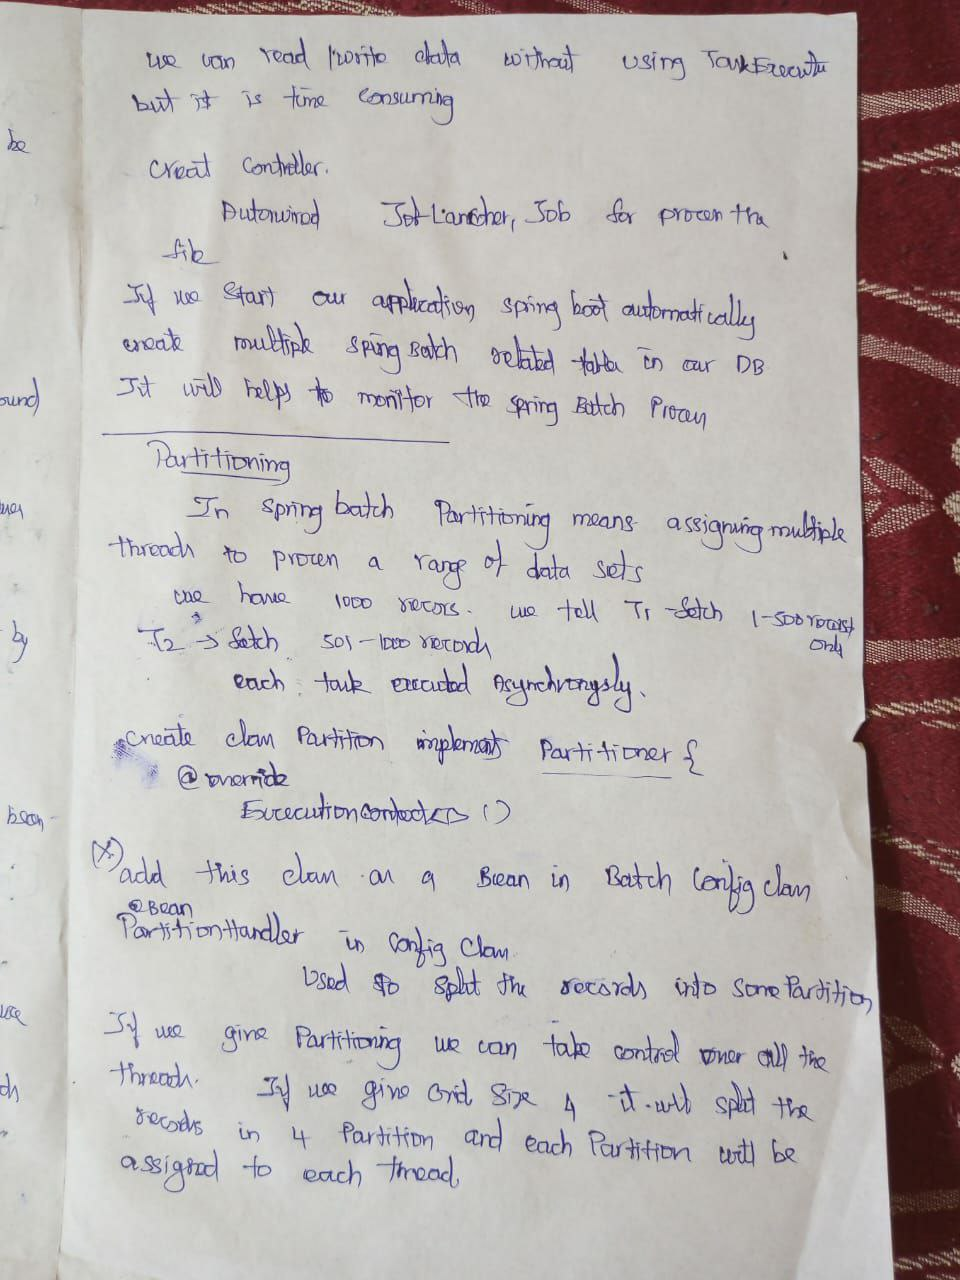 we can read /write data without using TaskExecutr
but it is time consuming
creat controller.
Autowired Job Launcher, Job for process the
file
If we start our application spring boot automatically
create multiple spring Batch related table in our DB
It will helps to monitor the spring Batch Process
Partitioning
In spring batch Partitioning means assigning multiple
threads to process a range of data sets
we have 1000 recors. we tell T1 fetch 1-500 records
only
T2 → fetch 501-1000 records
each task executed Asynchronysly.
create class Partition implements Partitioner {
@override
Executioncontext<> ()
(*) add this class as a Bean in Batch Config class
@Bean
PartitionHandler in Config Class.
Used to split the records into some Partition
If we give Partitioning we can take control over all the
threads. If we give Grid Size 4 it will split the
records in 4 Partition and each Partition will be
assigned to each thread.
be
ound
by
bean
use
ch